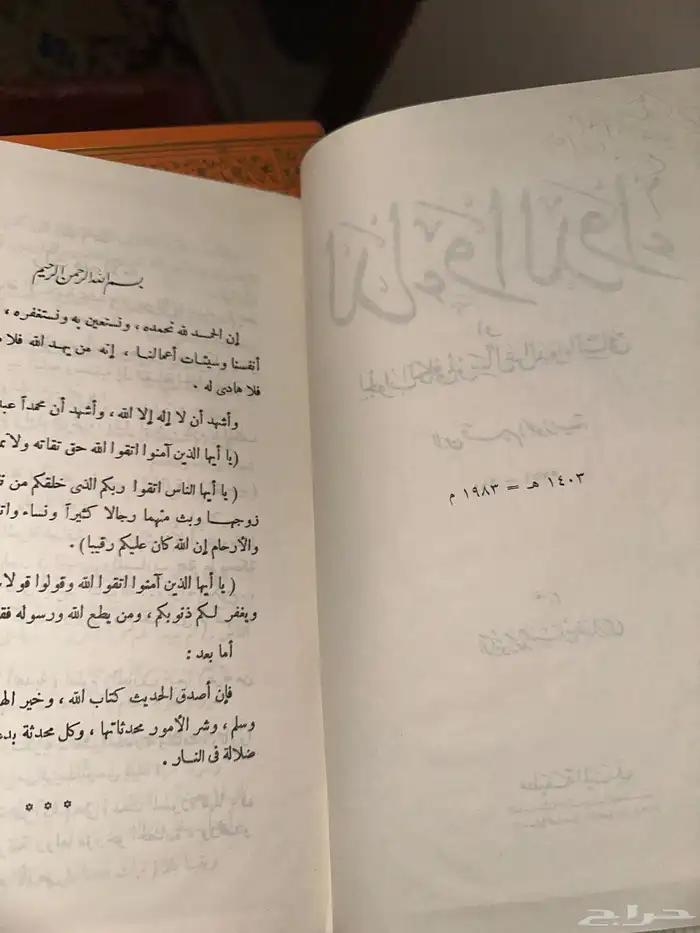 ١٤٠٣ هـ = ١٩٨٣ م
بسم الله الرحمن الرحيم
إن الحمد لله نحمده ، ونستعين به ونستغفره ،
أنفسنا وسيئات أعمالنا ، إنه من يهد الله فلا
فلا هادى له .
وأشهد أن لا إله إلا الله ، وأشهد أن محمداً
(يا أيها الذين آمنوا اتقوا الله حق تقاته ولا
( يا أيها الناس اتقوا ربكم الذى خلقكم من
زوجهـا وبث منهما رجالا كثيراً ونساء
والأرحام إن الله كان عليكم رقيبا) .
( يا أيها الذين آمنوا اتقوا الله وقولوا قولا
ويغفر لـكم ذنوبكم ، ومن يطع الله ورسوله
أما بعد :
فإن أصدق الحديث كتاب الله ، وخير
وسلم ، وشر الأمور محدثاتها ، وكل محدثة
ضلالة فى النـار .
* * *
الداء والدواء
أو
لابن قيم الجوزية
حراج